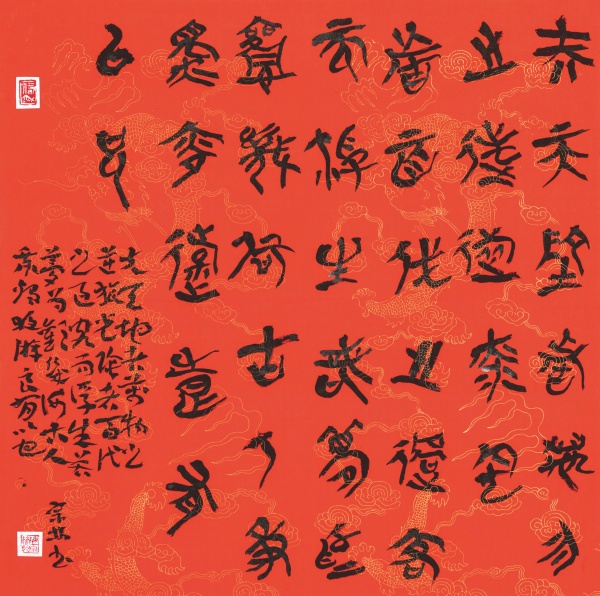 夫天地者萬物
之逆旅光陰
者百代之過客
而浮生若夢為
歡幾何古人秉
燭夜遊良有
以也
夫天地者萬物之
逆旅光陰者百代
之過客而浮生若
夢為歡幾何古人
秉燭夜遊良有以也